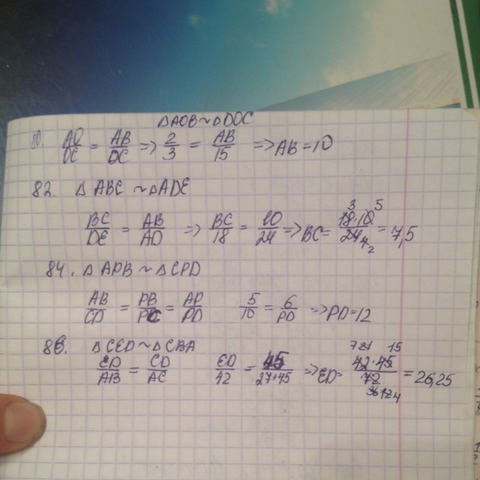 △AOB~△DOC
80. AO/OC = AB/DC => 2/3 = AB/15 => AB = 10
82. △ABC ~ △ADE
BC/DE = AB/AD => BC/18 = 10/24 => BC = 18·10/24 = 7,5
84. △APB ~ △CPD
AB/CD = PB/PC = AP/PD 5/10 = 6/PD => PD = 12
86. △CED ~ △CBA
ED/AB = CD/AC ED/42 = 45/27+45 => ED = 42·45/72 = 26,25